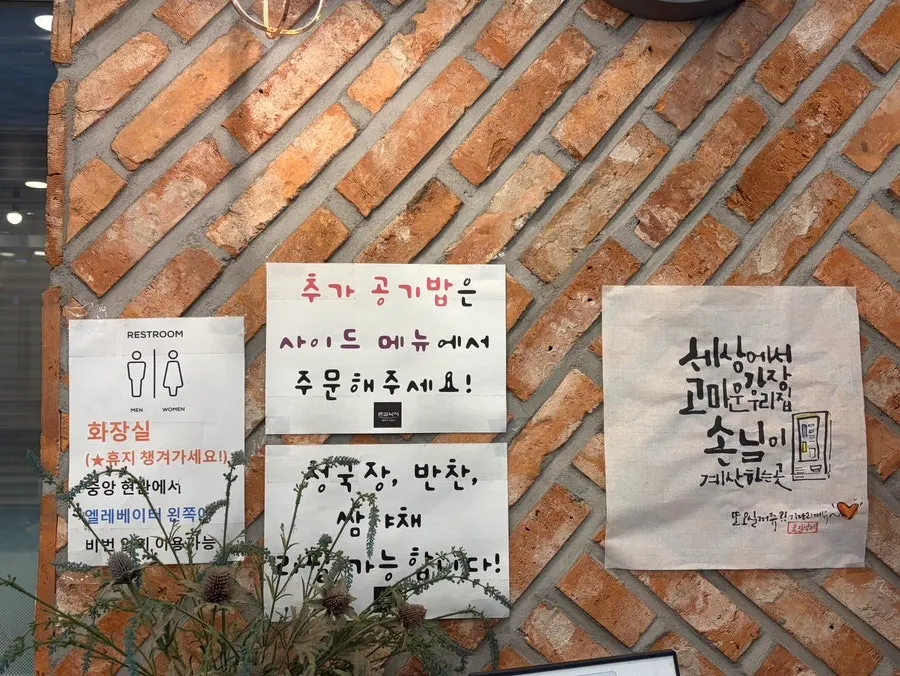 RESTROOM
MEN WOMEN
화장실
(★휴지 챙겨가세요!)
중앙 현관에서
엘레베이터 왼쪽
비번 없이 이용가능
추가 공기밥은
사이드 메뉴에서
주문해주세요!
청국장, 반찬,
쌈야채
리필 가능합니다!
세상에서
가장
고마운 우리집
손님이
계산하는곳
또 오실꺼쥬?!